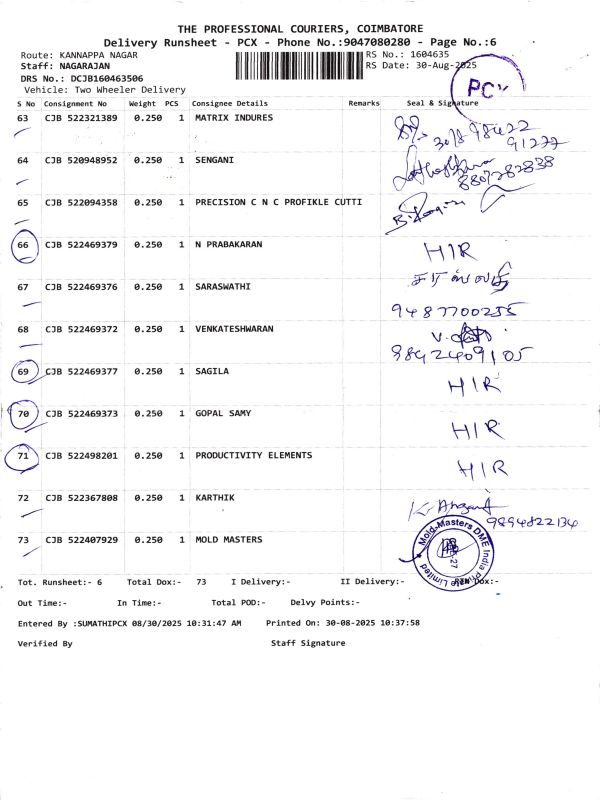 THE PROFESSIONAL COURIERS, COIMBATORE
Delivery Runsheet - PCX - Phone No.:9047080280 - Page No.:6
Route: KANNAPPA NAGAR RS No.: 1604635
Staff: NAGARAJAN RS Date: 30-Aug-2025
DRS No.: DCJB160463506
Vehicle: Two Wheeler Delivery
PCX
S No Consignment No Weight PCS Consignee Details Remarks Seal & Signature
63 CJB 522321389 0.250 1 MATRIX INDURES 30/8 98422
91277
64 CJB 520948952 0.250 1 SENGANI
8807282838
65 CJB 522094358 0.250 1 PRECISION C N C PROFIKLE CUTTI
66 CJB 522469379 0.250 1 N PRABAKARAN HIR
67 CJB 522469376 0.250 1 SARASWATHI சரஸ்வதி
9487700255
68 CJB 522469372 0.250 1 VENKATESHWARAN
9842409105
69 CJB 522469377 0.250 1 SAGILA HIR
70 CJB 522469373 0.250 1 GOPAL SAMY HIR
71 CJB 522498201 0.250 1 PRODUCTIVITY ELEMENTS HIR
72 CJB 522367808 0.250 1 KARTHIK
9894822134
73 CJB 522407929 0.250 1 MOLD MASTERS
Mold-Masters DME India Private Limited
Tot. Runsheet:- 6 Total Dox:- 73 I Delivery:- II Delivery:- Dox:-
Out Time:- In Time:- Total POD:- Delvy Points:-
Entered By :SUMATHIPCX 08/30/2025 10:31:47 AM Printed On: 30-08-2025 10:37:58
Verified By Staff Signature